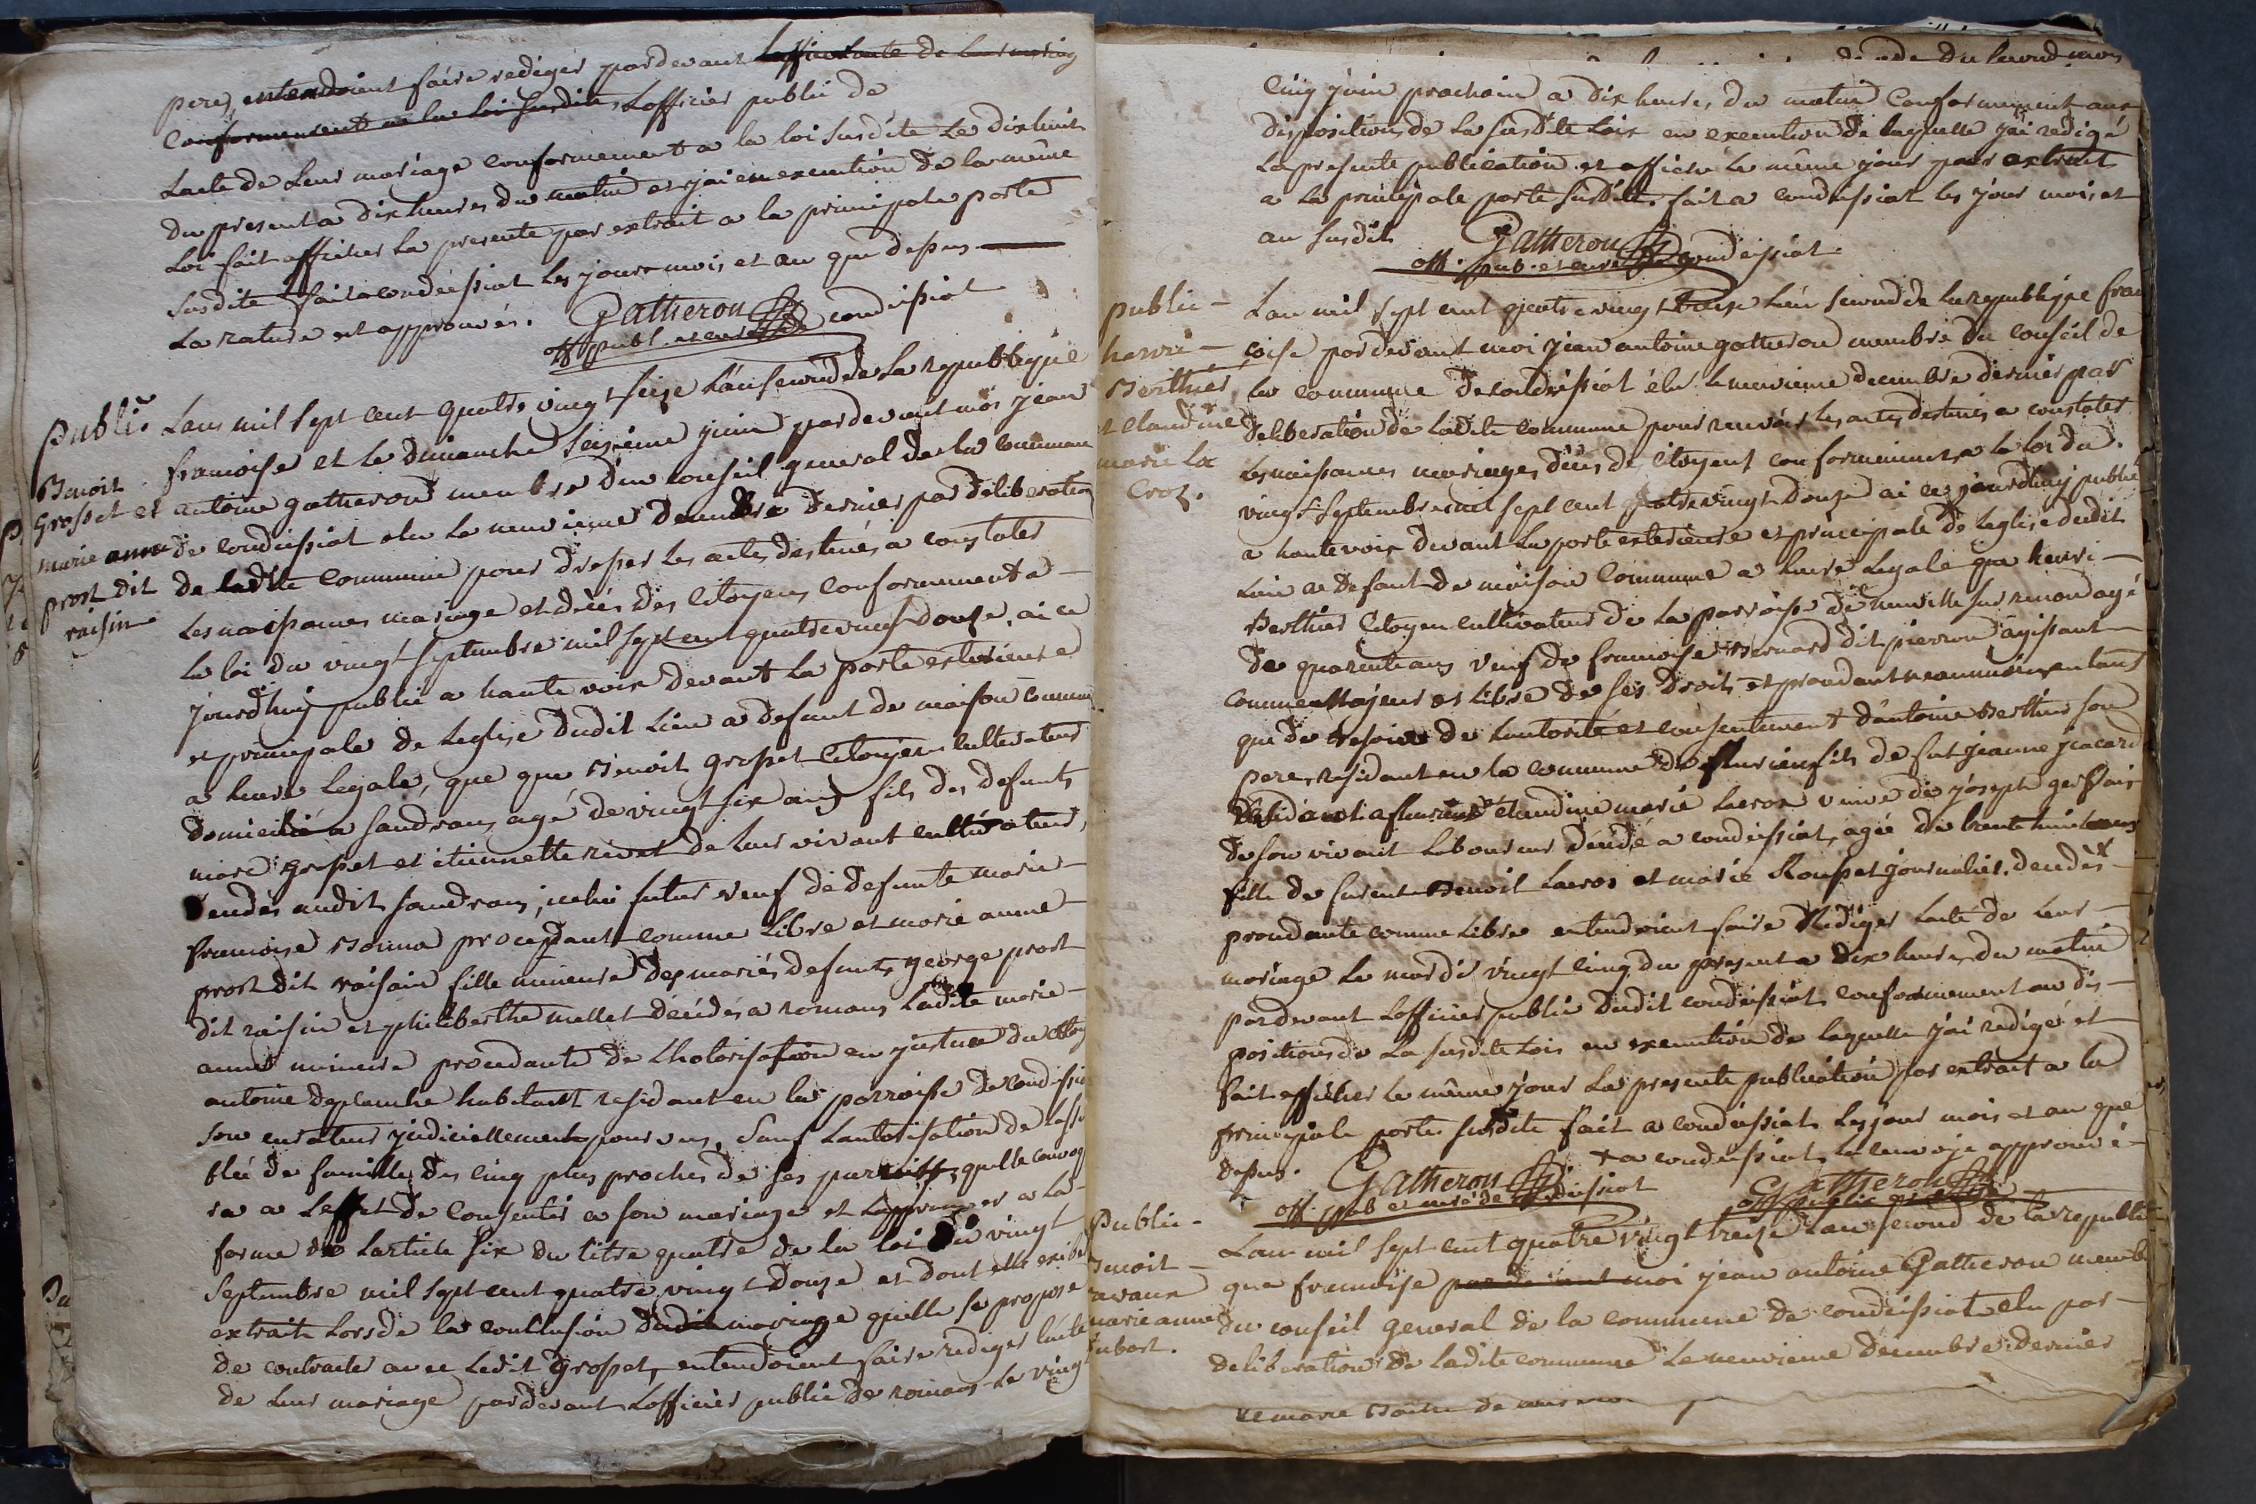 pere, entendoient faire rediger pardevant Lofficier
conformement a la loi susdite, Lofficier public de
Lacte de Leur mariage conformement a la loi susdite Le dixhuit
du present a dix heures du matin et j'ai en execution de la même
Loi fait afficher La presente par extrait a la principale porte
susdite fait a condeissiat les jours mois et an que dessus
La rature est approuvée. Gatheron
off publ. et curé de condeissiat
Public
Benoit
Grosset et
marie anne
prost dit
raisin
Lan mil sept cent quatre vingt treize Lan second de La republique
francoise et le dimanche seizieme juin pardevant moi jean
antoine gatheron membre du conseil general de la commune
de condeissiat elu le neuvieme decembre dernier par deliberation
de ladite commune pour dresser les actes destinés a constater
Les naissances mariage et décès des citoyens conformement a
la loi du vingt septembre mil sept cent quatre vingt douze, ai ce
jourdhuy publié a haute voix devant La porte exterieure
et principale de Leglise dudit Lieu a defaut de maison commune
a heure legale, que que Benoit grosset citoyen cultivateur
domicilié a sandrans, agé de vingt six ans fils des defunts
marc grosset et etiennette rivat de leur vivant cultivateurs,
dendés audit sandrans, icelui futur veuf de defunte marie
francoise procedant comme Libre et marie anne
prost dit raisin fille mineure des mariés defunts george prost
dit raisin et philiberthe mellet décédés a romans Ladite marie
anne mineure procedante de Lhotorisation en justice du
antoine deplanche habitant residant en la parroisse de condeissiat
son curateur judiciellement pourvus, sauf Lautorisation de
blée de famille des cinq plus proches de ses parents, quelle convoq
ra a Leffet de consentir a son mariage et Lapprouver a La
forme de Larticle six du titre quatre de la loi du vingt
septembre mil sept cent quatre vingt douze et dont elle
extrait Lors de la conclusion dudit mariage quelle se propose
de contracter avec Ledit grosset, entendoient faire rediger Lacte
de leur mariage pardevant Lofficier public de romans Le vingt
cinq juin prochain a dix heures du matin conformement aux
dispositions de La susdite Loix en execution de laquelle j'ai redigé
La presente publication et affiché le même jour par extrait
a La principale porte susdite. fait a condeissiat les jour mois et
an susdits Gatheron
off. pub. et curé de condeissiat
public
henri
Berthier
et claudine
marie La
Croz.
Lan mil sept cent quatre vingt treize Lan second de La republique fran
coise pardevant moi jean antoine gatheron membre du conseil de
la commune de condeissiat elu le neuvieme decembre dernier par
deliberation de ladite commune pour recevoir les actes destinés a constater
Les naissances mariages, décès des citoyens conformement a la loi du
vingt septembre mil sept cent quatre vingt douze ai ce jourdhuy publié
a haute voix devant La porte exterieure et principale de Leglise dudit
Lieu a defaut de maison commune a heure Legale que henri
Berthier citoyen cultivateur de La parroisse de neuville sur renon agé
de quarente ans veuf de francoise Bernard dit pierron agissant
comme majeur et libre de ses droits et procedant neanmoins en tant
que de besoin de Lautorité et consentement d'antoine Berthier son
pere, residant en la commune de flurieux fils de fut jeanne jacard
Residant a flurieux claudine marie Lacroz veuve de joseph gerbais
de son vivant Laboureur dendé a condeissiat, agée de trente huit ans
fille de furent Benoit Lacroz et marie Rousset journalier. dendés
procedante comme Libre entendoient faire Rediger Lacte de Leur
mariage Le mardi vingt cinq du present a dix heures du matin
pardevant Lofficier public dudit condeissiat conformement au dis
positions de La susdite Lois en execution de laquelle j'ai redigé et
fait afficher le même jour La presente publication par extrait a la
principale porte susdite fait a condeissiat Les jour mois et an que
dessus. + a condeissiat, Le renvoje approuvé
Gatheron Gatheron
off. pub et curé de condeissiat off public et curé
Public
Benoit
ravaux
marie anne
Lan mil sept cent quatre vingt treize Lan second de La republi
que francoise pardevant moi jean antoine Gatheron memb
du conseil general de la commune de condeissiat elu par
deliberation de ladite commune Le neuvieme decembre dernier